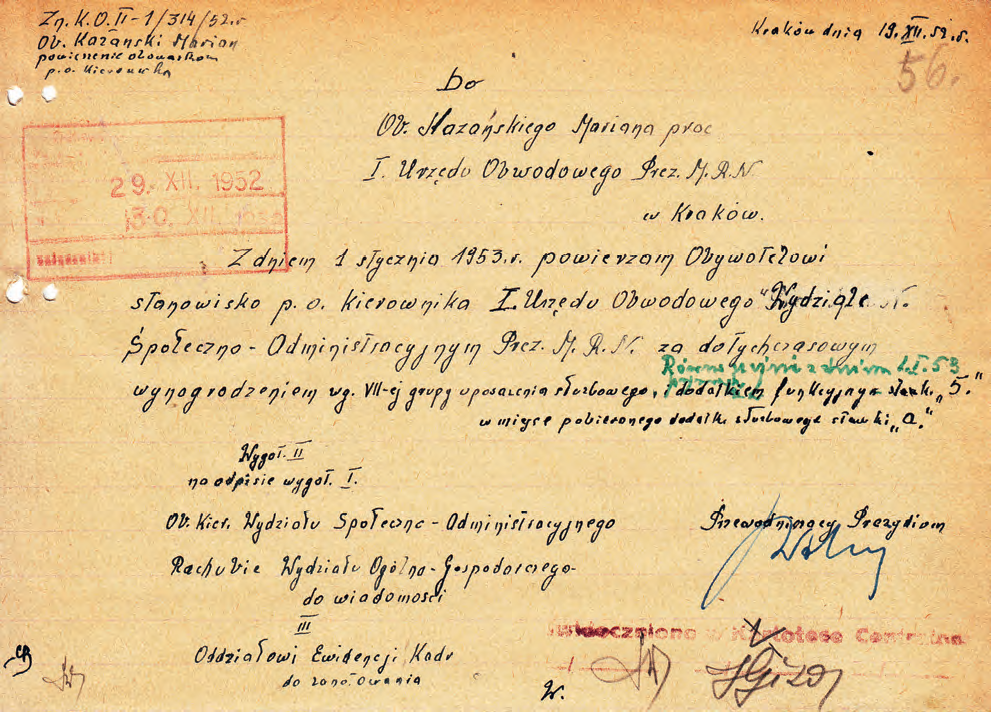 Zn. K.O.II-1/314/52.r
Ob. Kazański Marian
powierzenie obowiązków
p.o. Kierownika
Kraków dnia 19.XII.52.r.
56.
Do
Ob. Kazańskiego Mariana prac
I. Urzędu Obwodowego Prez. M.R.N.
w Kraków.
29. XII. 1952
30. XII. 1952
Z dniem 1 stycznia 1953.r. powierzam Obywatelowi
stanowisko p.o. kierownika I. Urzędu Obwodowego Wydziale
Społeczno-Administracyjnym Prez. M.R.N. za dotychczasowym
Równocześnie z dniem 1.I.53
przyznaję
wynagrodzeniem wg. VII-ej grupy uposażenia służbowego, i dodatkiem funkcyjnym stawki „5."
w miejsce pobieranego dodatk. służbowego stawki „a."
Wygot. II
na odpisie wygot. I.
Ob. Kier. Wydziału Społeczno-Administracyjnego
Przewodniczący Prezydium
Rachubie Wydziału Ogólno-Gospodarczego-
do wiadomości
III
Uwidoczniono w Kartotece Centralnej
Oddziałowi Ewidencji Kadr
do zanotowania
W.